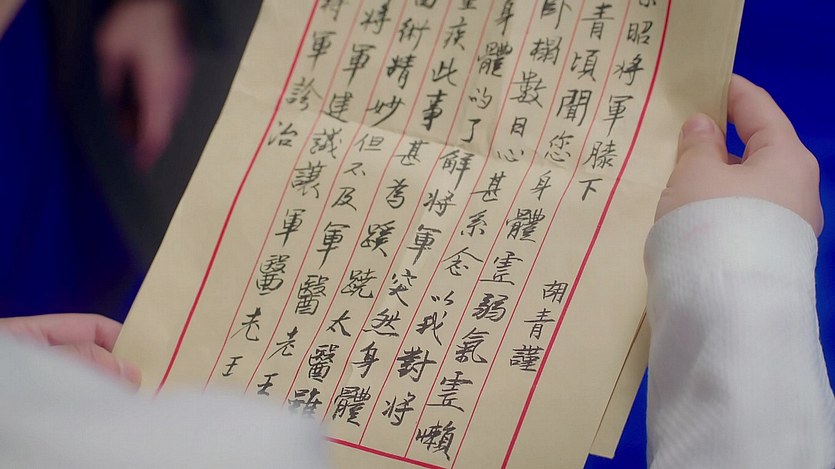 昭將軍膝下 胡青謹
青頃聞您身體霊弱氣霊懶
臥榻數日心甚系念以我對將
身體的了解將軍突然身體
疾此事甚為蹊蹺太醫雖
術精妙但不及軍醫老王
將軍建誠讓軍醫老王
軍診治